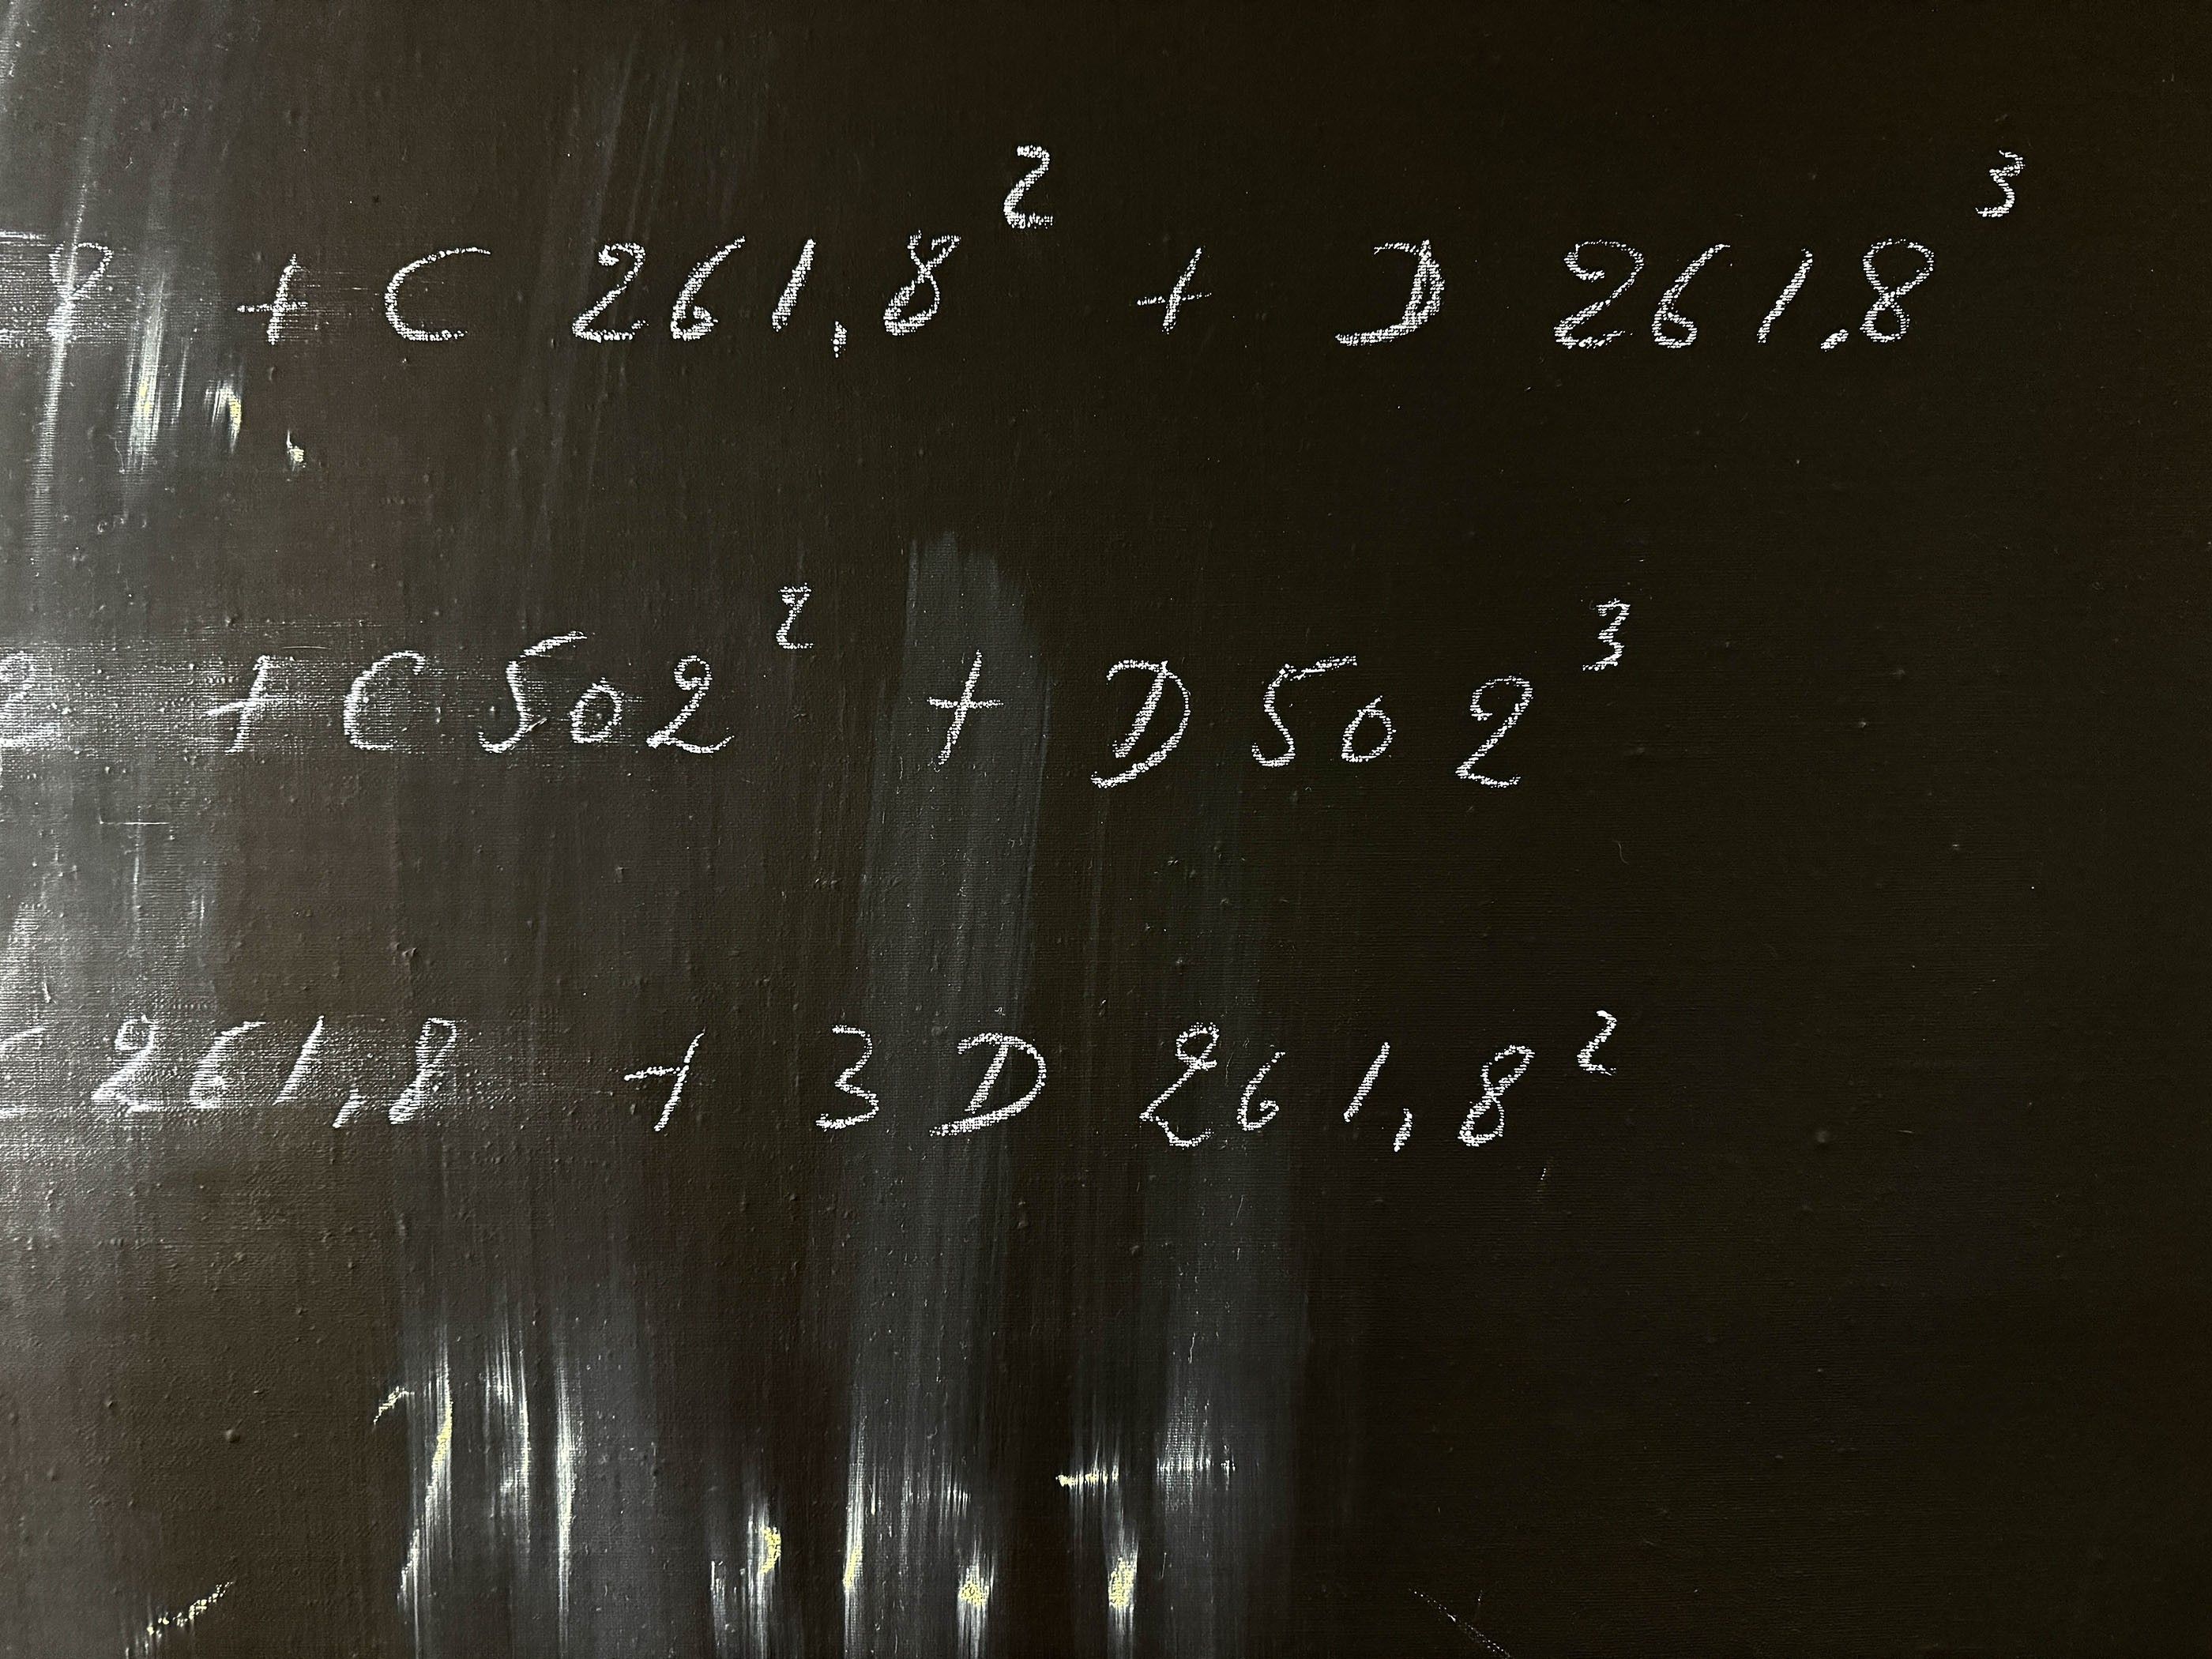 8 + C 261,8² + D 261,8³
2 + C 502² + D 502³
C 261,8 + 3 D 261,8²